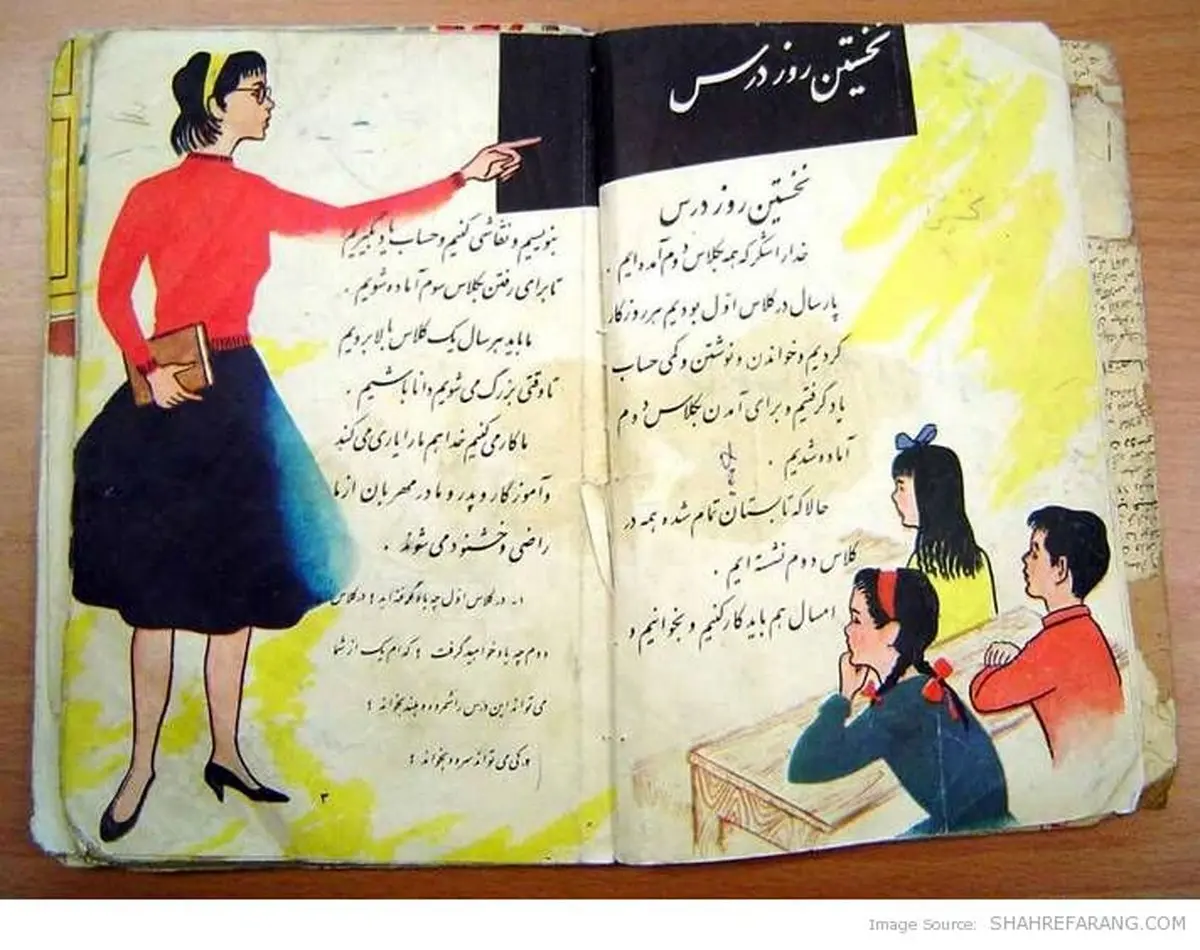 نخستین روز درس
نخستین روز درس
خدا را شکر که همه بکلاس دوم آمده ایم .
پارسال در کلاس اوّل بودیم هر روز کار
کردیم و خواندن و نوشتن و کمی حساب
یاد گرفتیم و برای آمدن بکلاس دوم
آماده شدیم .
حالا که تابستان تمام شده همه در
کلاس دوم نشسته ایم .
امسال هم باید کار کنیم و بخوانیم و
بنویسیم و نقاشی کنیم و حساب یاد بگیریم
تا برای رفتن بکلاس سوم آماده شویم .
ما باید هر سال یک کلاس بالا برویم
تا وقتی بزرگ می شویم دانا باشیم .
ما کار می کنیم خدا هم ما را یاری می کند
و آموزگار و پدر و مادر مهربان از ما
راضی و خشنود می شوند .
۱- در کلاس اوّل چه یاد گرفته اید ؟ در کلاس
دوم چه یاد خواهید گرفت ؟ کدام یک از شما
می تواند این درس را شمرده و بلند بخواند ؟
و کی می تواند سرود بخواند ؟
۳
Image Source: SHAHREFARANG.COM